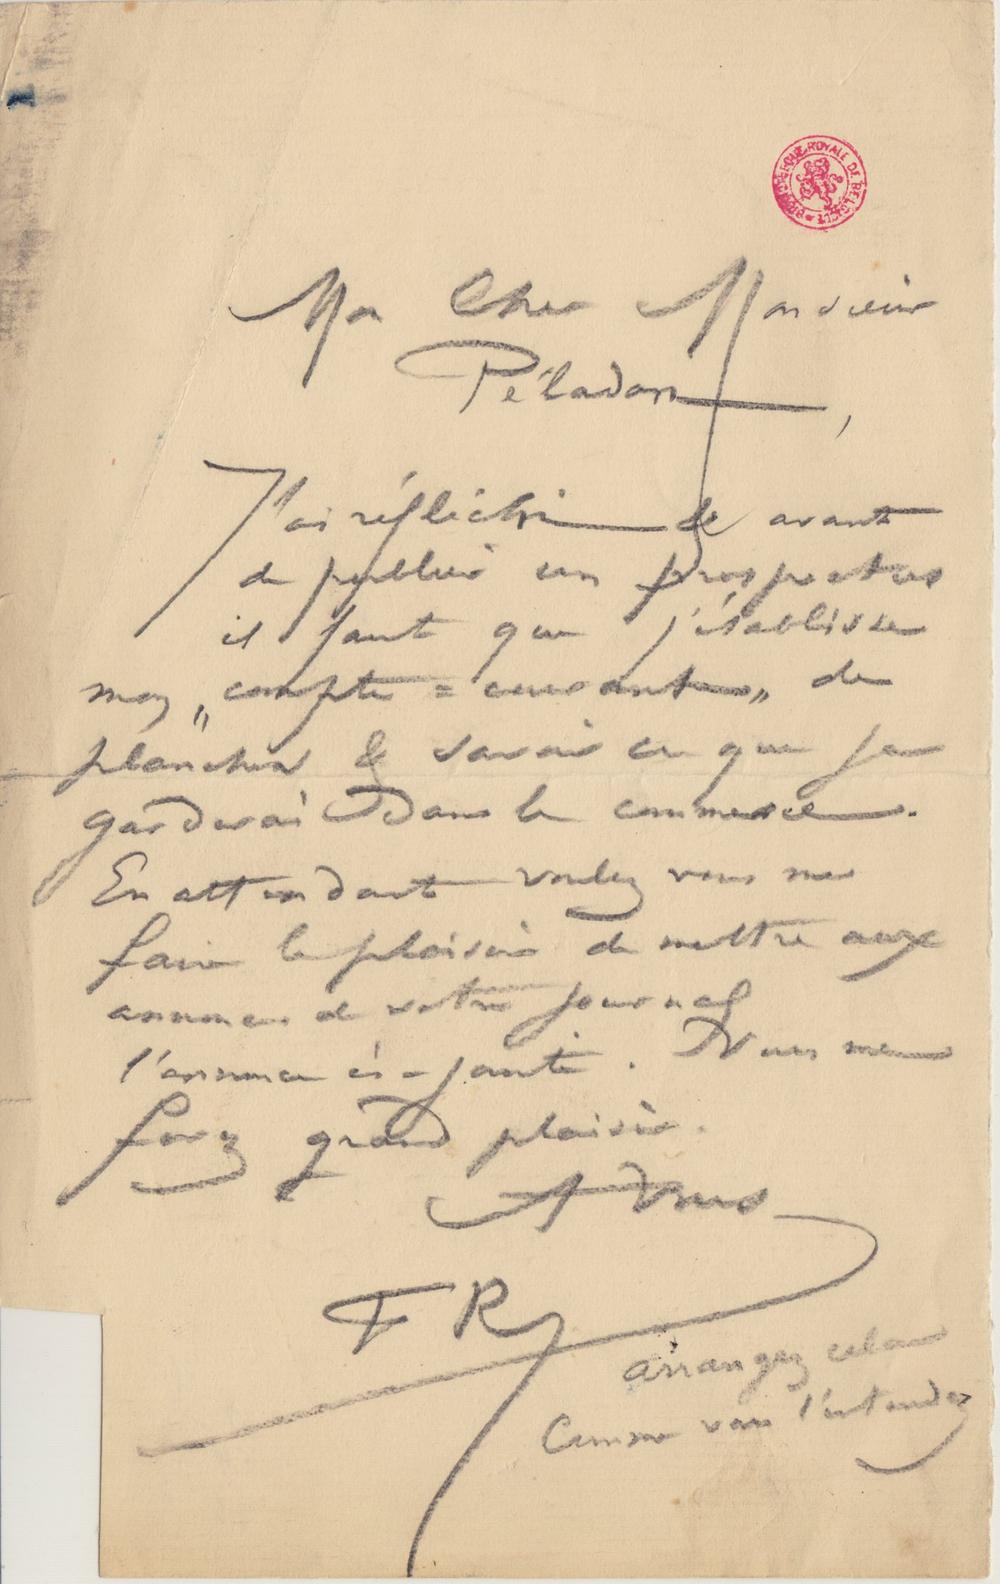 BIBLIOTHÈQUE ROYALE DE BELGIQUE
Mon Cher Monsieur
Péladan,
J'ai réfléchi & avant
de publier un prospectus
il faut que j'établisse
mon „compte = courant„ de
planches & savoir ce que je
garderai dans le commerce.
En attendant voulez vous me
faire le plaisir de mettre aux
annonces de votre journal
l'annonce ci-jointe. Vous me
ferez grand plaisir.
A Vous
FR
arrangez cela
Comme vous l'entendez